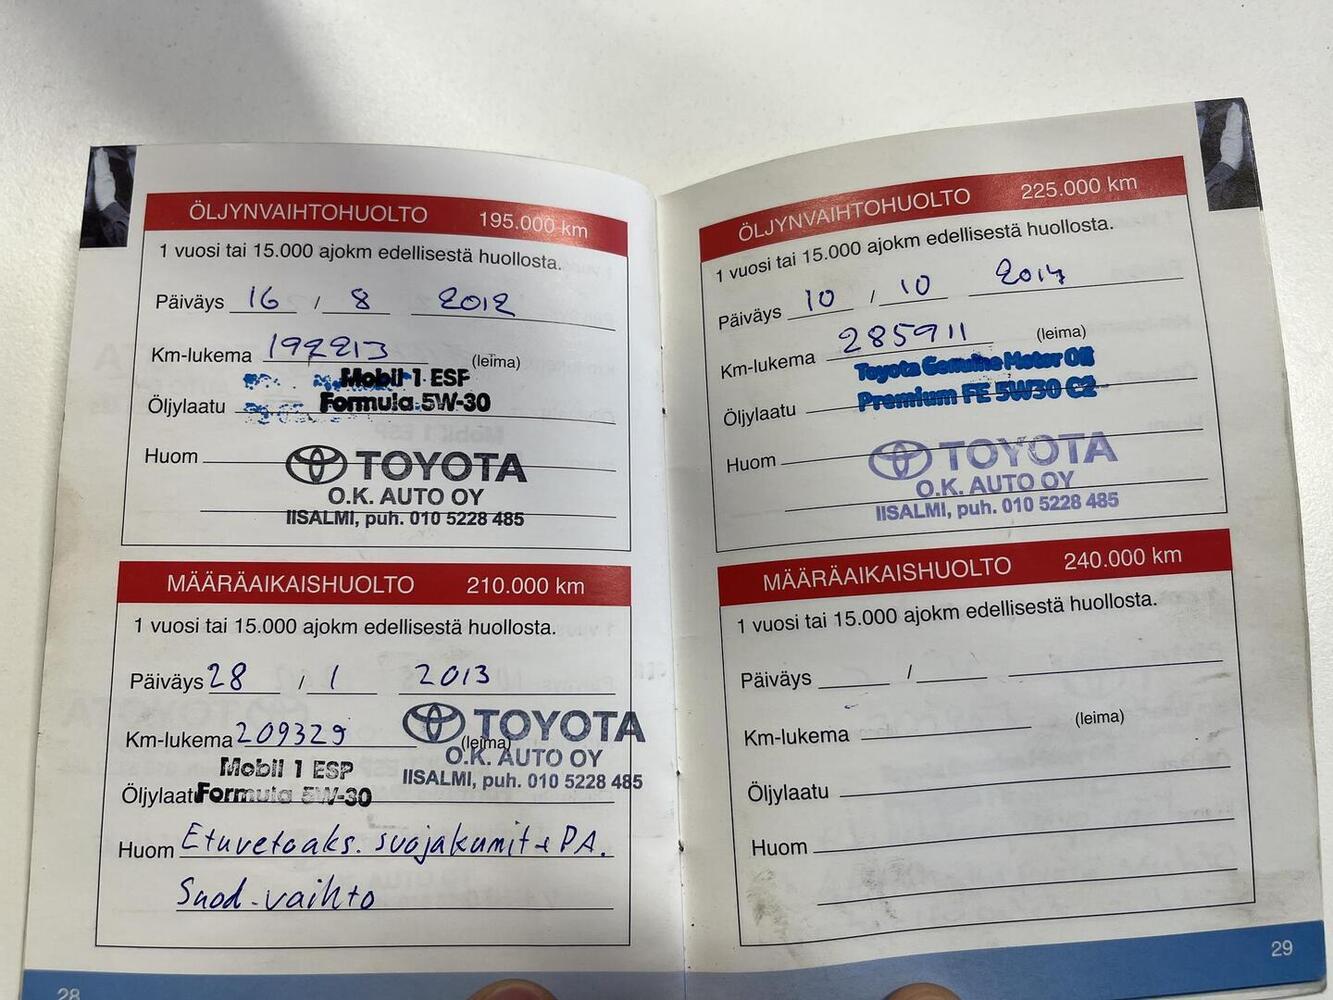 ÖLJYNVAIHTOHUOLTO 195.000 km
1 vuosi tai 15.000 ajokm edellisestä huollosta.
Päiväys 16 / 8 2012
Km-lukema 192213
(leima)
Mobil 1 ESP
Öljylaatu Formula 5W-30
Huom
TOYOTA
O.K. AUTO OY
IISALMI, puh. 010 5228 485
MÄÄRÄAIKAISHUOLTO 210.000 km
1 vuosi tai 15.000 ajokm edellisestä huollosta.
Päiväys 28 / 1 2013
Km-lukema 209329 (leima)
TOYOTA
O.K. AUTO OY
IISALMI, puh. 010 5228 485
Mobil 1 ESP
Öljylaatu Formula 5W-30
Huom Etuvetoaks. suojakumit + PA.
Suod-vaihto
28
ÖLJYNVAIHTOHUOLTO 225.000 km
1 vuosi tai 15.000 ajokm edellisestä huollosta.
Päiväys 10 / 10 2014
Km-lukema 285911 (leima)
Toyota Genuine Motor Oil
Öljylaatu Premium FE 5W30 C2
Huom
TOYOTA
O.K. AUTO OY
IISALMI, puh. 010 5228 485
MÄÄRÄAIKAISHUOLTO 240.000 km
1 vuosi tai 15.000 ajokm edellisestä huollosta.
Päiväys /
Km-lukema (leima)
Öljylaatu
Huom
29